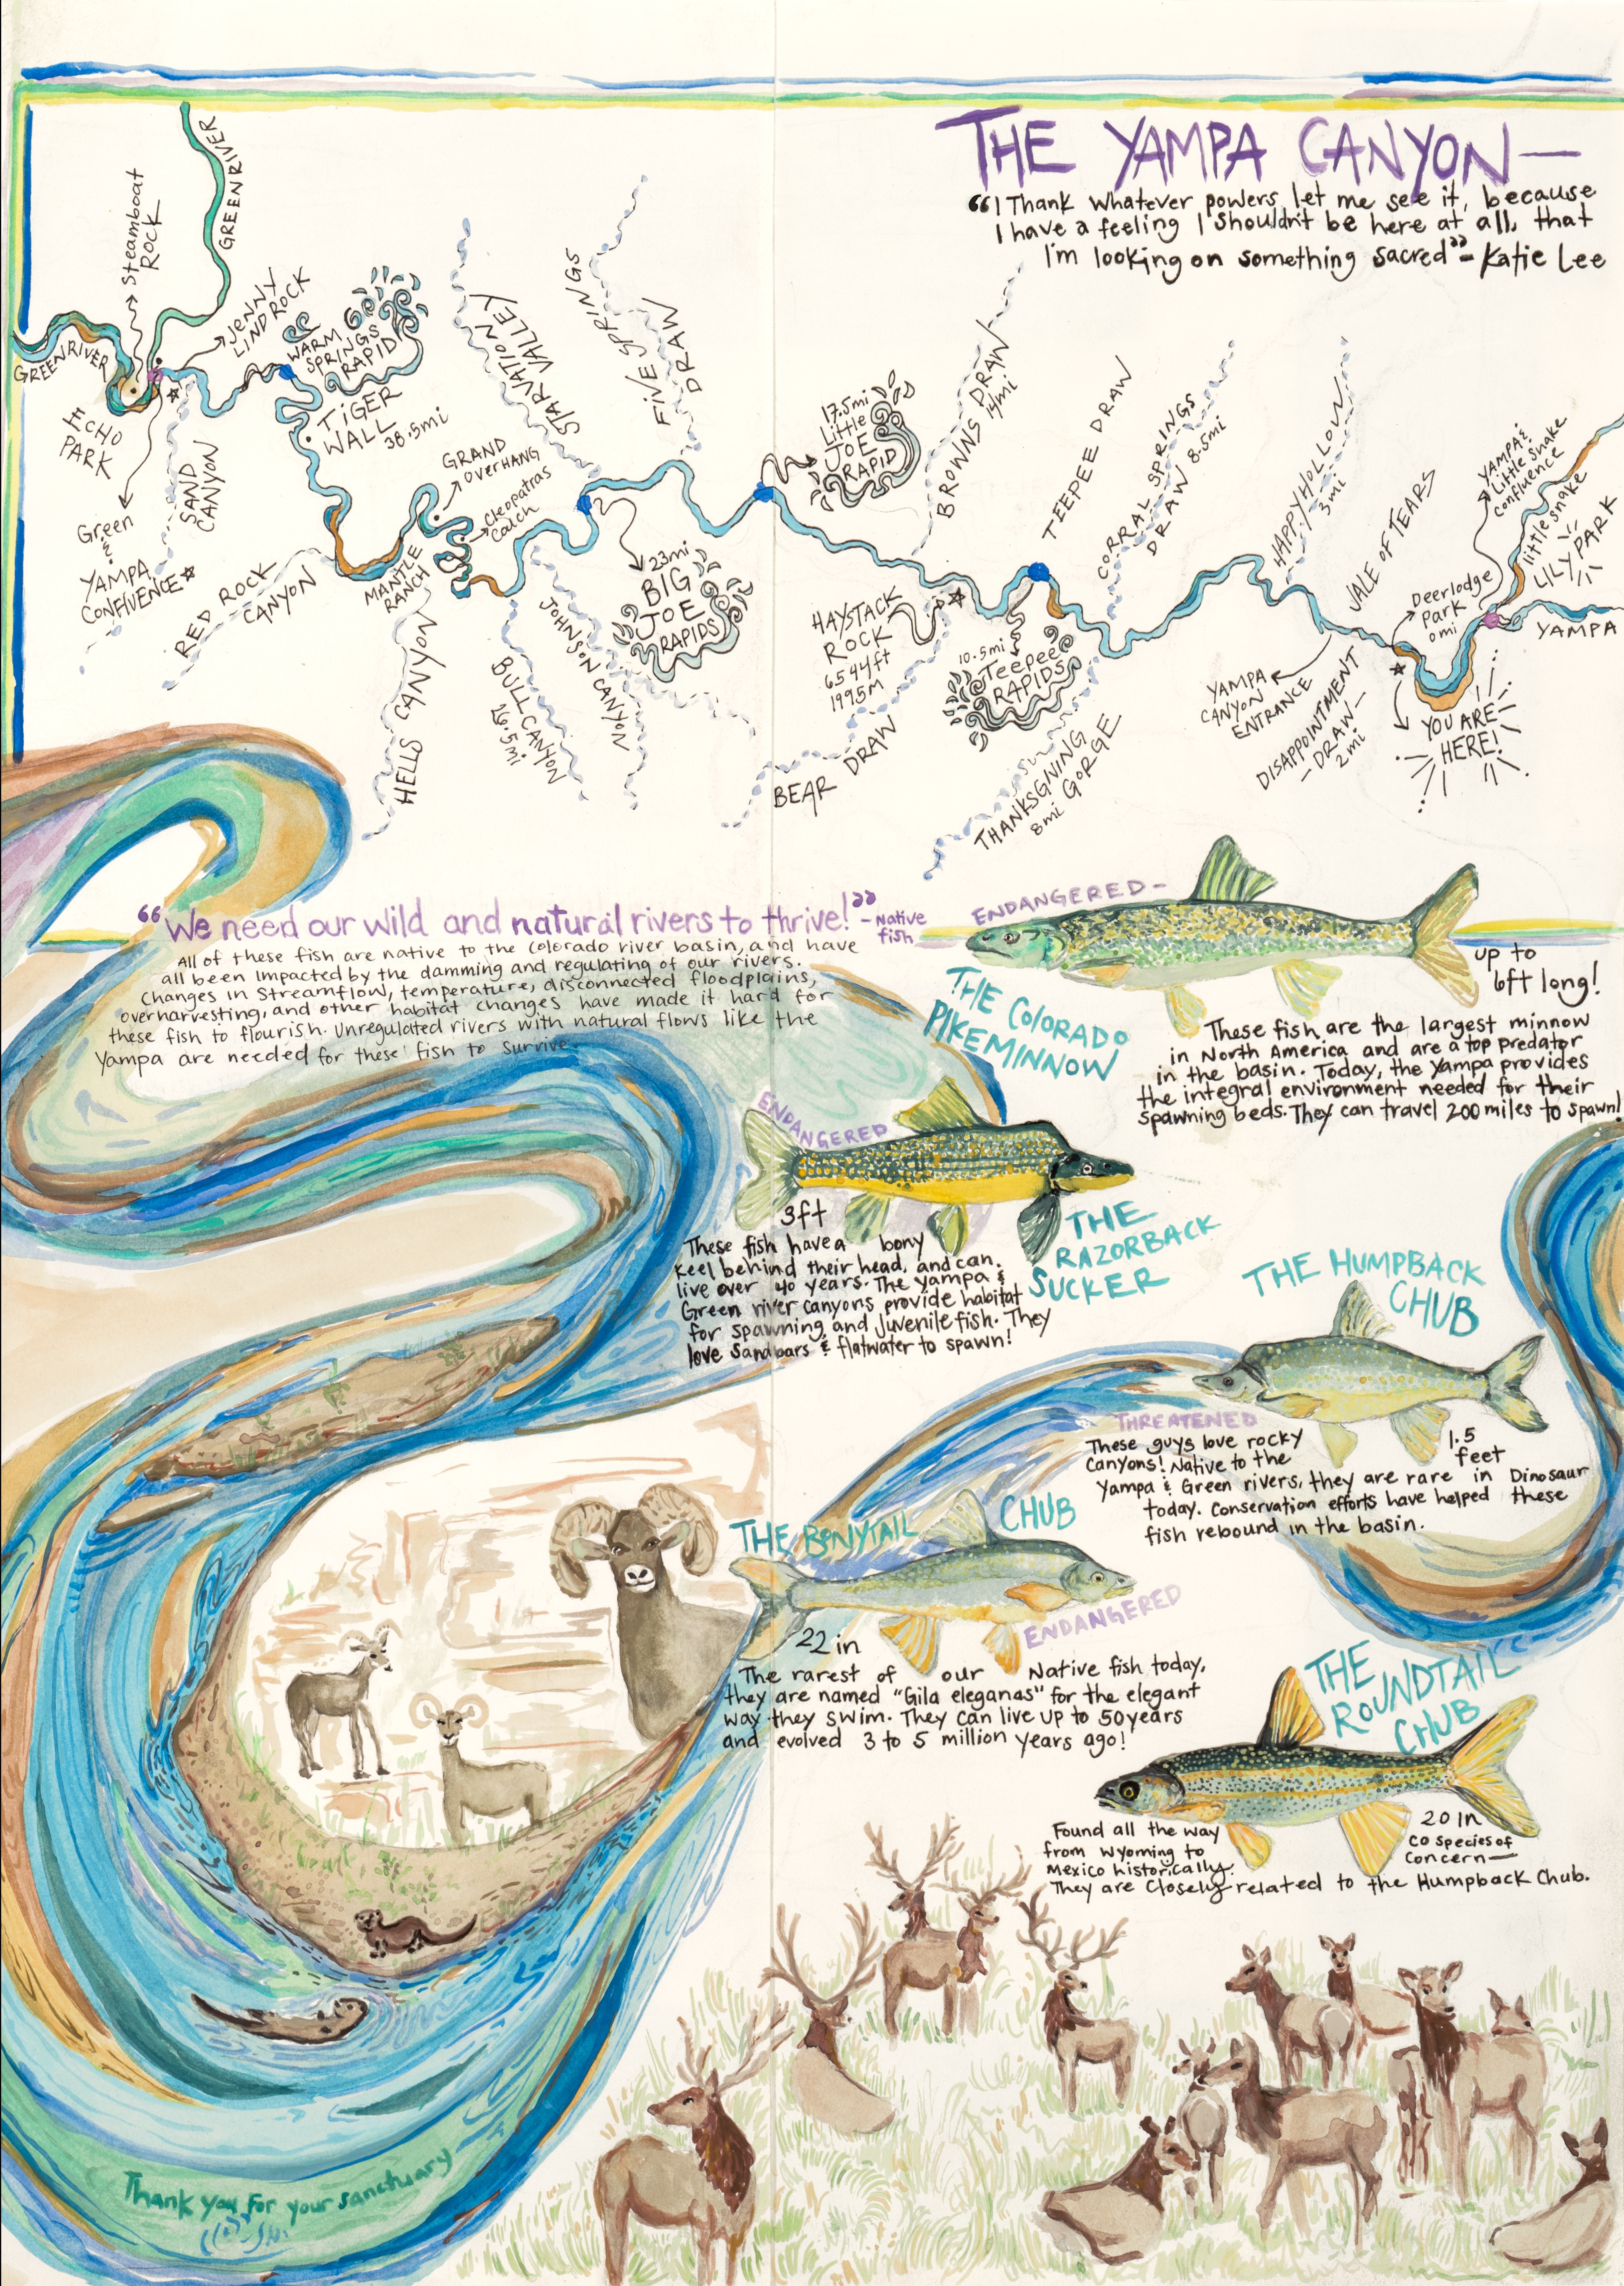 THE YAMPA CANYON—
"I Thank whatever powers let me see it, because
I have a feeling I shouldn't be here at all, that
I'm looking on something sacred" - Katie Lee
GREEN RIVER
Steamboat
ROCK
GREEN RIVER
JENNY
LIND ROCK
WARM
SPRINGS
RAPID
ECHO
PARK
Green
&
YAMPA
CONFLUENCE
SAND
CANYON
TIGER
WALL
38.5mi
RED ROCK
CANYON
GRAND
OVERHANG
Cleopatras
Couch
MANTLE
RANCH
HELLS CANYON
STARVATION
VALLEY
FIVE SPRINGS
DRAW
BULL CANYON
26.5mi
JOHNSON CANYON
23mi
BIG
JOE
RAPIDS
17.5mi
Little
JOE
RAPID
BROWNS DRAW
14mi
HAYSTACK
ROCK
6544ft
1995M
BEAR DRAW
TEEPEE DRAW
10.5mi
Teepee
RAPIDS
CORRAL SPRINGS
DRAW 8.5mi
THANKSGIVING
GORGE
8mi
HAPPY HOLLOW
3mi
VALE OF TEARS
YAMPA
CANYON
ENTRANCE
DISAPPOINTMENT
-DRAW-
2mi
Deerlodge
Park
0mi
YAMPA &
Little Snake
Confluence
little snake
LILY PARK
YAMPA
YOU ARE
HERE!
"We need our wild and natural rivers to thrive!"
- Native
fish
All of these fish are native to the Colorado river basin, and have
all been impacted by the damming and regulating of our rivers.
Changes in streamflow, temperature, disconnected floodplains,
overharvesting, and other habitat changes have made it hard for
these fish to flourish. Unregulated rivers with natural flows like the
Yampa are needed for these fish to survive.
ENDANGERED-
THE COLORADO
PIKEMINNOW
up to
6ft long!
These fish are the largest minnow
in North America and are a top predator
in the basin. Today, the Yampa provides
the integral environment needed for their
spawning beds. They can travel 200 miles to spawn!
ENDANGERED
THE
RAZORBACK
SUCKER
3ft
These fish have a bony
keel behind their head, and can
live over 40 years. The Yampa &
Green river canyons provide habitat
for spawning and juvenile fish. They
love sandbars & flatwater to spawn!
THE HUMPBACK
CHUB
THREATENED
1.5
feet
These guys love rocky
canyons! Native to the
Yampa & Green rivers, they are rare in Dinosaur
today. Conservation efforts have helped these
fish rebound in the basin.
THE BONYTAIL CHUB
ENDANGERED
22 in
The rarest of our Native fish today,
they are named "Gila eleganas" for the elegant
way they swim. They can live up to 50 years
and evolved 3 to 5 million years ago!
THE
ROUNDTAIL
CHUB
20 in
CO species of
Concern—
Found all the way
from Wyoming to
Mexico historically.
They are closely related to the Humpback Chub.
Thank you for your sanctuary